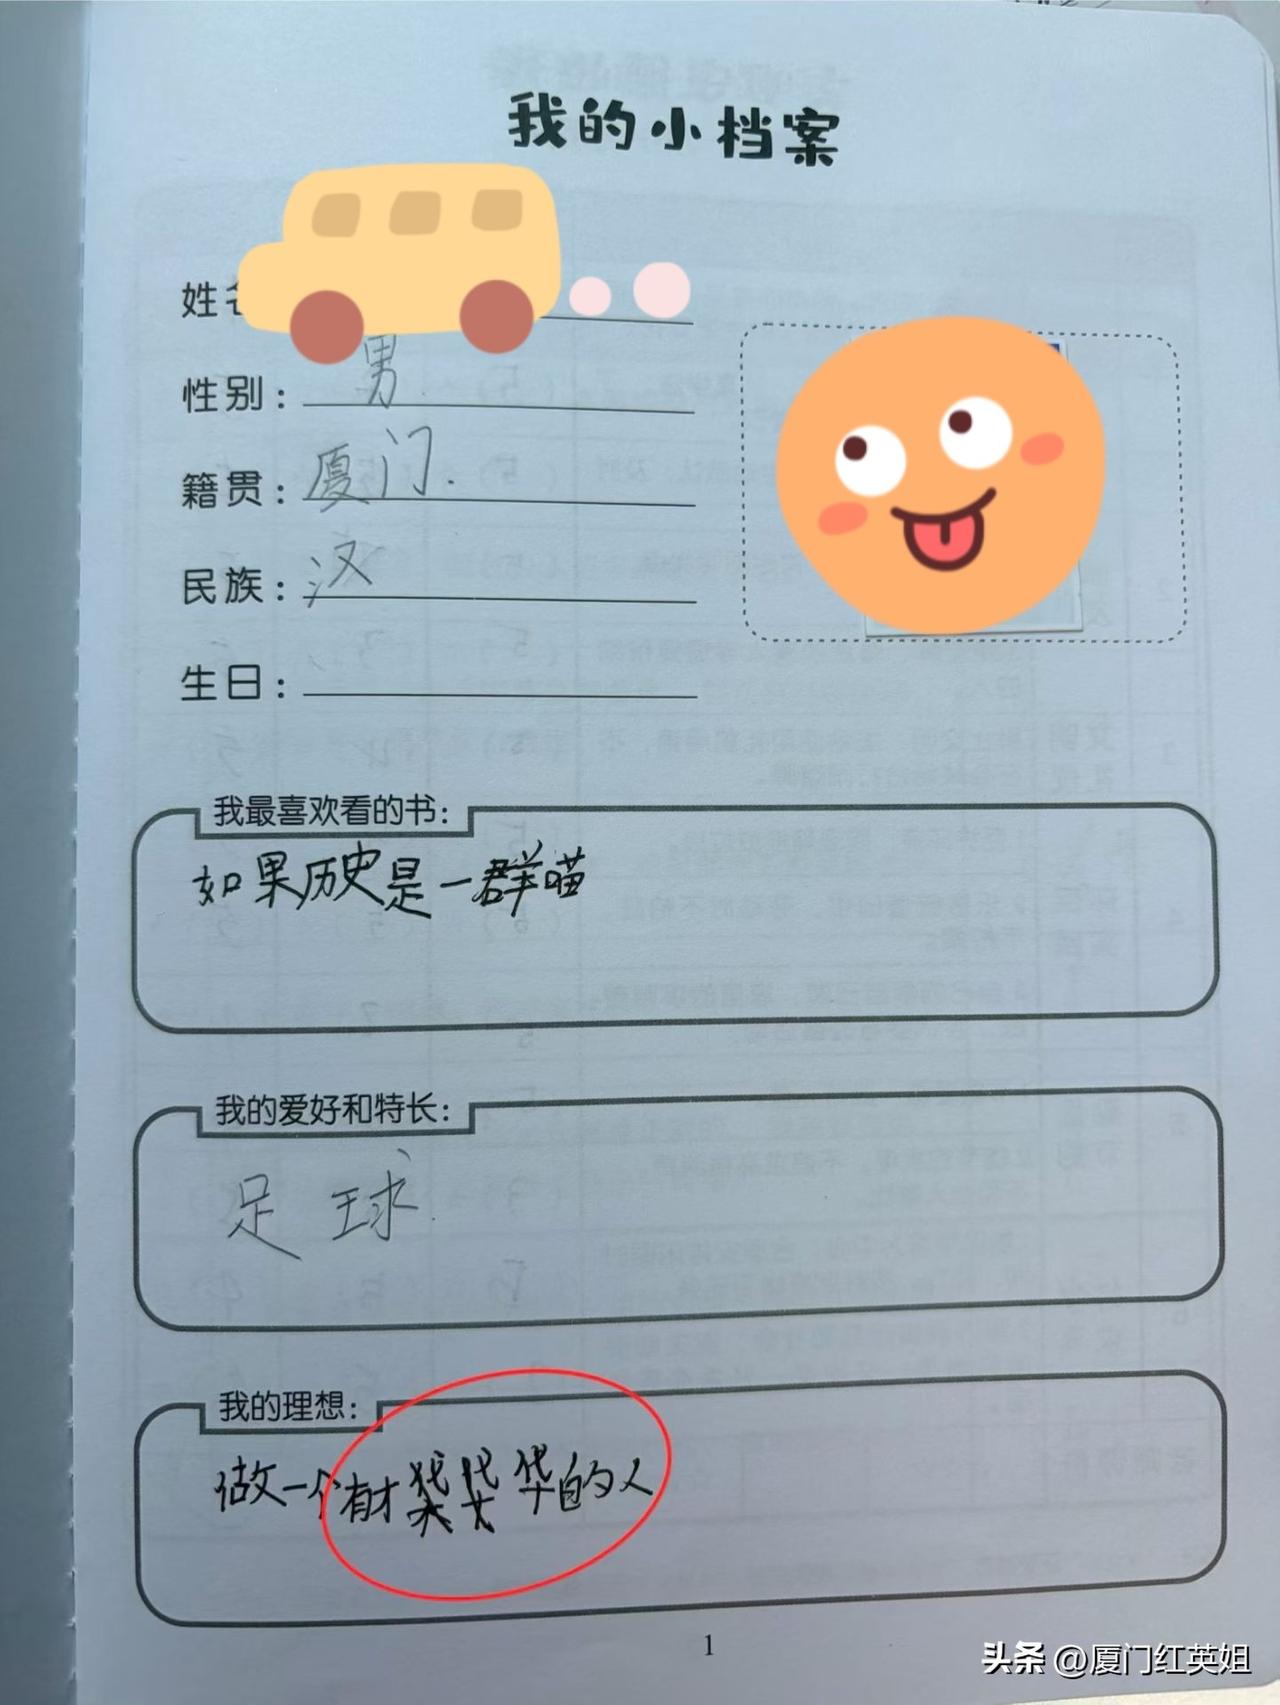 我的小档案
姓名
性别：男
籍贯：厦门.
民族：汉
生日：
我最喜欢看的书：
如果历史是一群喵
我的爱好和特长：
足球
我的理想：
做一个有才华的人
1
头条 @厦门红英姐